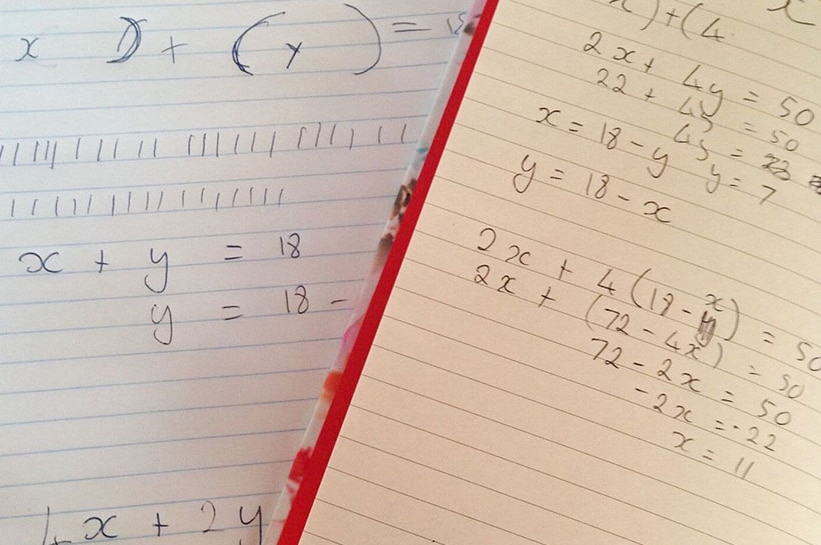 x ) + ( y ) = 18
x + y = 18
y = 18 -
4x + 2y
) + (4
x
2x + 4y = 50
22 + 4y = 50
4y = 28
x = 18 - y
y = 7
y = 18 - x
2x + 4(18 - x) = 50
2x + (72 - 4x) = 50
72 - 2x = 50
-2x = -22
x = 11